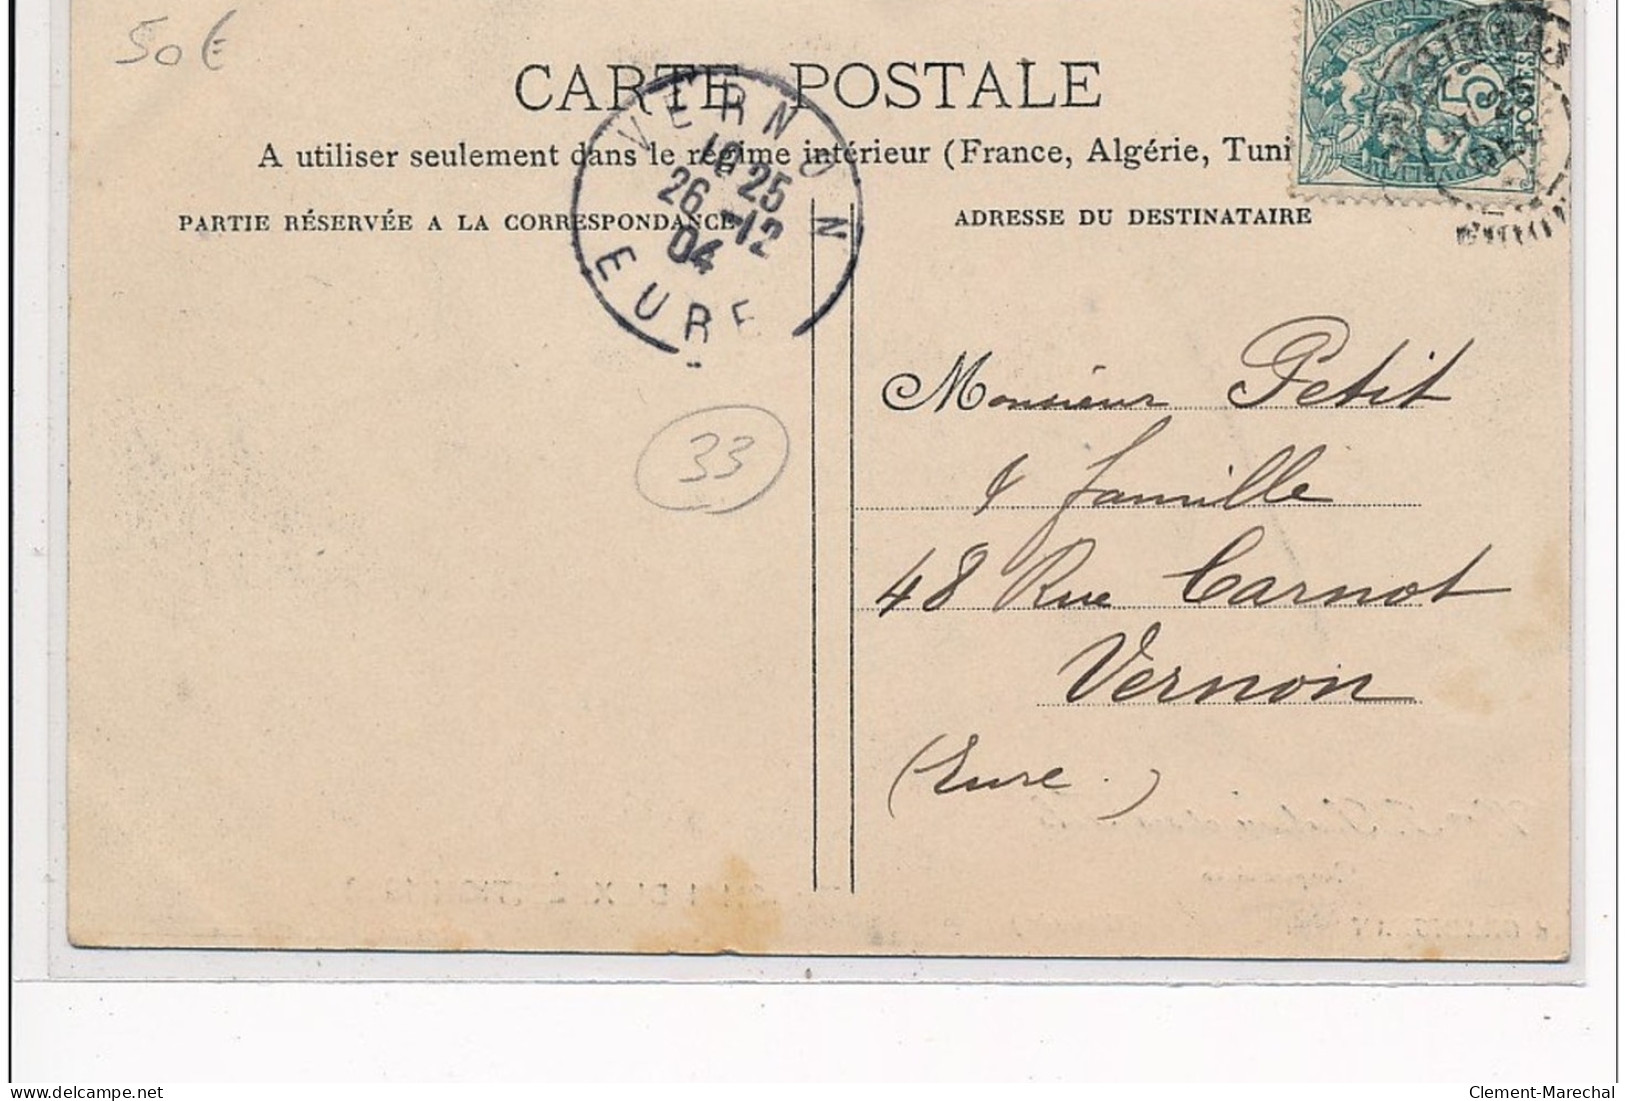 50€
CARTE POSTALE
A utiliser seulement dans le régime intérieur (France, Algérie, Tuni
PARTIE RÉSERVÉE A LA CORRESPONDANCE
ADRESSE DU DESTINATAIRE
VERNON
10 25
26 -12
04
EURE
FRANÇAISE
5
POSTES
33
Monsieur Petit
& famille
48 Rue Carnot
Vernon
(Eure.)
delcampe.net
Clement-Marechal